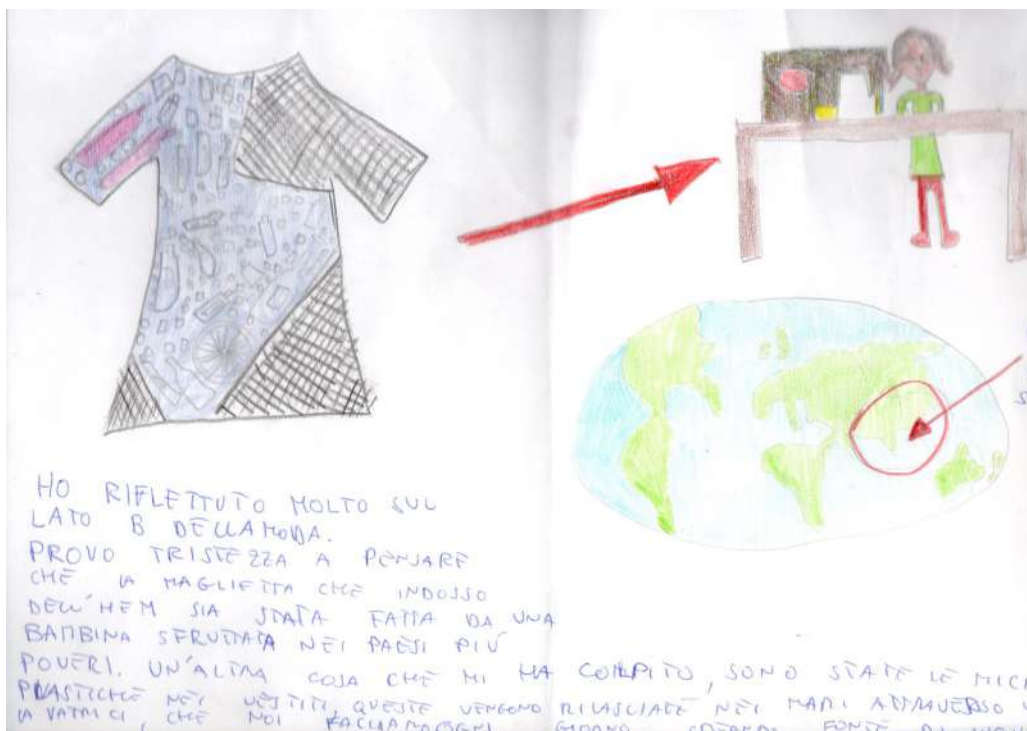 HO RIFLETTUTO MOLTO SUL
LATO B DELLA MODA.
PROVO TRISTEZZA A PENSARE
CHE LA MAGLIETTA CHE INDOSSO
DELL'HEM SIA STATA FATTA DA UNA
BAMBINA SFRUTTATA NEI PAESI PIÙ
POVERI. UN'ALTRA COSA CHE MI HA COLPITO, SONO STATE LE MICR
PLASTICHE NEI VESTITI, QUESTE VENGONO RILASCIATE NEI MARI ATTRAVERSO
LAVATRICI, CHE NOI FACCIAMO OGNI GIORNO CREANDO FONTE DI
S